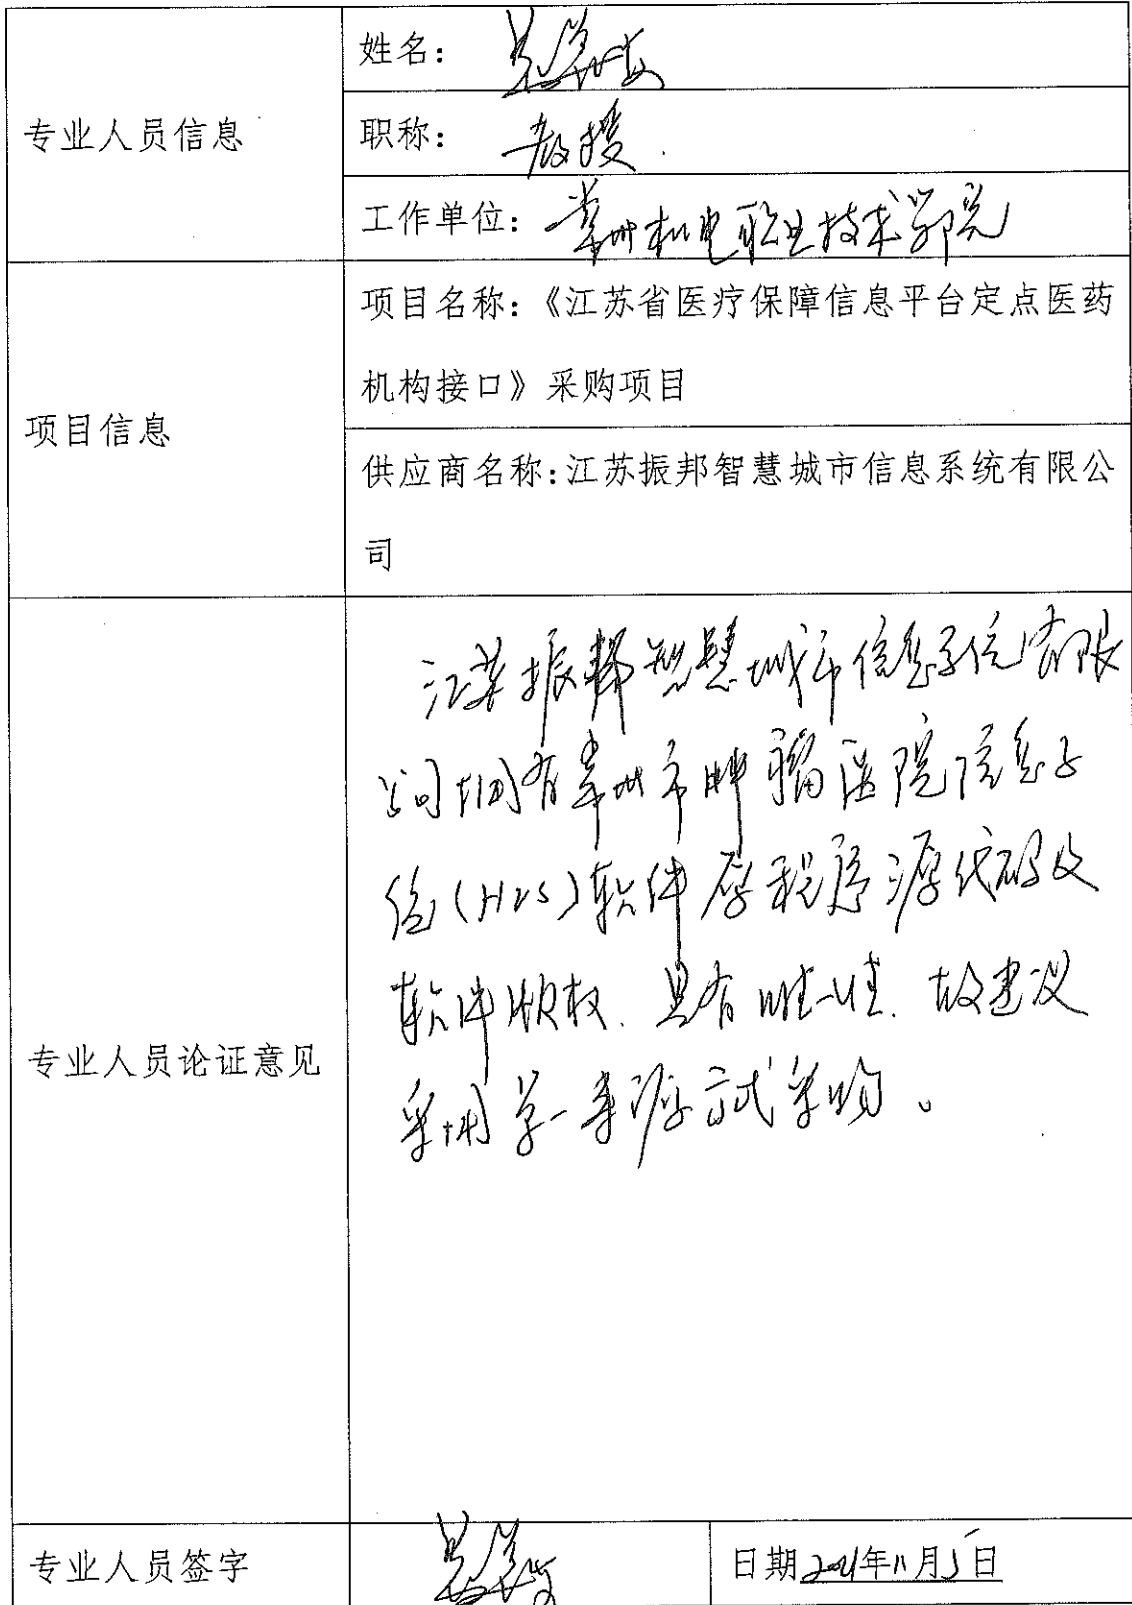 专业人员信息
姓名：
职称： 教授
工作单位： 常州机电职业技术学院
项目信息
项目名称：《江苏省医疗保障信息平台定点医药
机构接口》采购项目
供应商名称：江苏振邦智慧城市信息系统有限公
司
专业人员论证意见
江苏振邦智慧城市信息系统有限
公司拥有常州市肿瘤医院信息系
统(HIS)软件原程序源代码及
软件版权.具有唯一性.故建议
采用单一来源方式采购。
专业人员签字
日期2021年11月5日